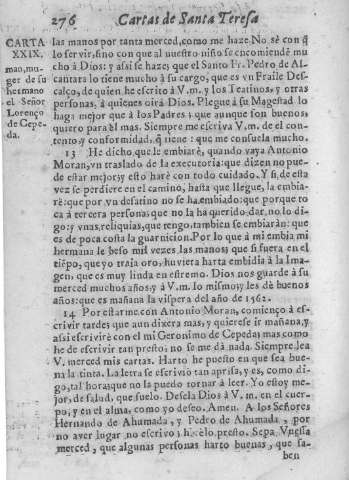 276 Cartas de Santa Teresa
CARTA
XXIX.
man, mu-
ger de su
hermano
el Señor
Lorenço
de Cepe-
da.
las manos por tanta merced, como me haze. No sè con q̃
lo servir, sino con que al nuestro niño se encomiende mu
cho à Dios: y assi se haze; que el Santo Fr. Pedro de Al-
cantara lo tiene mucho à su cargo, que es vn Fraile Des-
calço, de quien he escrito à V.m. y los Teatinos, y otras
personas, à quienes oirà Dios. Plegue à su Magestad lo
haga mejor que à los Padres; que aunque son buenos,
quiero para èl mas. Siempre me escriva V.m. de el con-
tento, y conformidad, q̃ tiene: que me consuela mucho.
13 He dicho, que le embiarè, quando vaya Antonio
Moran, vn traslado de la executoria: que dizen no pue-
de estar mejor; y esto harè con todo cuidado. Y si, de esta
vez se perdiere en el camino, hasta que llegue, la embia-
rè: que por vn desatino no se ha embiado: que porque to
ca à tercera persona, que no la ha querido dar, no lo di-
go: y vnas reliquias, que tengo, tambien se embiaràn: que
es de poca costa la guarnicion. Por lo que à mi embia mi
hermana le beso mil vezes las manos; que si fuera en el
tiẽpo, que yo traia oro, huviera harta embidia à la Ima-
gen; que es muy linda en estremo. Dios nos guarde à su
merced muchos años, y à V.m. lo mismo, y les dè buenos
años: que es mañana la vispera del año de 1562.
14 Por estarme con Antonio Moran, comienço à es-
crivir tardes que aun dixera mas, y quierese ir mañana, y
assi escrivirè con el mi Geronimo de Cepeda; mas como
he de escrivir tan presto, no se me dà nada. Siempre lea
V. merced mis cartas. Harto he puesto en que sea bue-
na la tinta. La letra se escrivió tan aprisa, y es, como di-
go, tal hora, que no la puedo tornar à leer. Yo estoy me-
jor, de salud, que suelo. Desela Dios à V.m. en el cuer-
po, y en el alma, como yo deseo. Amen. A los Señores
Hernando de Ahumada, y Pedro de Ahumada, por
no aver lugar, no escrivo; harèlo presto. Sepa Vuessa
merced, que algunas personas harto buenas, que sa-
ben